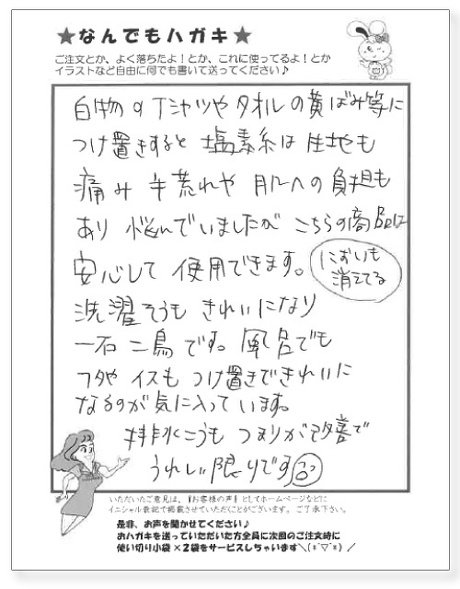 ★なんでもハガキ★
ご注文とか、よく落ちたよ！とか、これに使ってるよ！とか
イラストなど自由に何でも書いて送ってください♪
白物のTシャツやタオルの黄ばみ等に
つけ置きすると塩素系は生地も
痛み手荒れや肌への負担も
あり悩んでいましたがこちらの商品は
安心して使用できます。
においも
消えてる
洗濯そうもきれいになり
一石二鳥です。風呂でも
フタやイスもつけ置きできれいに
なるのが気に入っています。
排水こうもつまりが改善で
うれしい限りです
いただいたご意見は、『お客様の声』としてホームページなどに
イニシャル表記で掲載させていただくことがございます。ご了承下さい。
是非、お声を聞かせてください♪
おハガキを送っていただいた方全員に次回のご注文時に
使い切り小袋×2袋をサービスしちゃいます＼(*ˇ▽ˇ*)／